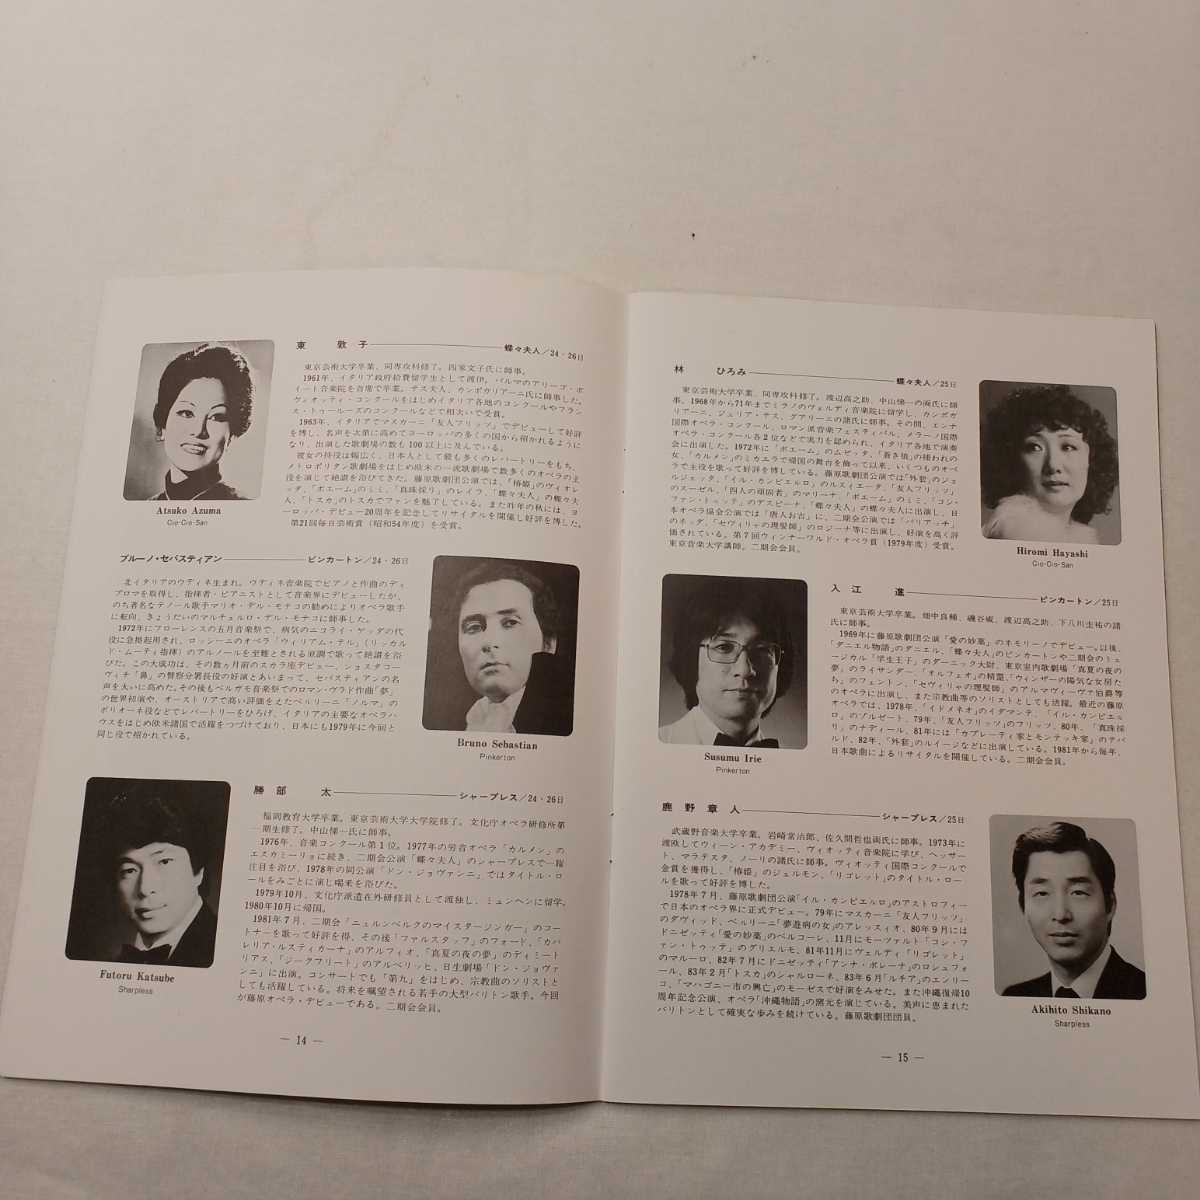 東　敦子 ― 蝶々夫人／24・26日
東京芸術大学卒業、同専攻科修了。四家文子氏に師事。
1961年、イタリア政府給費留学生として渡伊。パルマのアリーゴ・ボ
イート音楽院を首席で卒業。テス夫人、カンポガリアーニ氏に師事した。
ヴィオッティ・コンクールをはじめイタリア各地のコンクールやフラン
ス・トゥールーズのコンクールなどで相次いで受賞。
1963年、イタリアでマスカーニ「友人フリッツ」でデビューして好評
を博し、名声を次第に高めてヨーロッパの多くの国から招かれるように
なり、出演した歌劇場の数も100以上に及んでいる。
彼女の持役は幅広く、日本人として最も多くのレパートリーをもち、
メトロポリタン歌劇場をはじめ欧米の一流歌劇場で数多くのオペラの主
役を演じて絶讃を浴びてきた。藤原歌劇団公演では、「椿姫」のヴィオレ
ッタ、「ボエーム」のミミ、「真珠採り」のレイラ、「蝶々夫人」の蝶々夫
人、「トスカ」のトスカでファンを魅了している。また昨年の秋には、ヨ
ーロッパ・デビュー20周年を記念してリサイタルを開催し好評を博した。
第21回毎日芸術賞（昭和54年度）を受賞。
Atsuko Azuma
Cio-Cio-San
ブルーノ・セバスティアン ― ピンカートン／24・26日
北イタリアのウディネ生まれ。ウディネ音楽院でピアノと作曲のディ
プロマを取得し、指揮者・ピアニストとして音楽界にデビューしたが、
のち著名なテノール歌手マリオ・デル・モナコの勧めによりオペラ歌手
に転向、きょうだいのマルチェルロ・デル・モナコに師事した。
1972年にフローレンスの五月音楽祭で、病気のニコライ・ゲッダの代
役に急拠起用され、ロッシーニのオペラ「ウィリアム・テル」（リッカル
ド・ムーティ指揮）のアルノールを至難とされる原調で歌って絶讃を浴
びた。この大成功は、その数ヵ月前のスカラ座デビュー、ショスタコー
ヴィチ「鼻」の警察分署長役の好演とあいまって、セバスティアンの名
声を大いに高めた。その後もベルガモ音楽祭でのロマン・ヴラド作曲「夢」
の世界初演や、オーストリアで高い評価をえたベルリーニ「ノルマ」の
ポリオーネ役などでレパートリーをひろげ、イタリアの主要なオペラハ
ウスをはじめ欧米諸国で活躍をつづけており、日本にも1979年に今回と
同じ役で招かれている。
Bruno Sebastian
Pinkerton
勝部　太 ― シャープレス／24・26日
福岡教育大学卒業。東京芸術大学大学院修了。文化庁オペラ研修所第
一期生修了。中山悌一氏に師事。
1976年、音楽コンクール第1位。1977年の労音オペラ「カルメン」の
エスカミーリョに続き、二期会公演「蝶々夫人」のシャープレスで一躍
注目を浴び、1978年の同公演「ドン・ジョヴァンニ」ではタイトル・ロ
ールをみごとに演じ喝采を浴びた。
1979年10月、文化庁派遣在外研修員として渡独し、ミュンヘンに留学。
1980年10月に帰国。
1981年7月、二期会「ニュルンベルクのマイスタージンガー」のコー
トナーを歌って好評を得、その後「ファルスタッフ」のフォード、「カバ
レリア・ルスティカーナ」のアルフィオ、「真夏の夜の夢」のディミート
リアス、「ジークフリート」のアルベリッヒ、日生劇場「ドン・ジョヴァ
ンニ」に出演。コンサートでも「第九」をはじめ、宗教曲のソリストと
しても活躍している。将来を嘱望される若手の大型バリトン歌手。今回
が藤原オペラ・デビューである。二期会会員。
Futoru Katsube
Sharpless
― 14 ―
林　ひろみ ― 蝶々夫人／25日
東京芸術大学卒業、同専攻科修了。渡辺高之助、中山悌一の両氏に師
事。1968年から71年までミラノのヴェルディ音楽院に留学し、カンポガ
リアーニ、ジュリア・テス、グアリーニの諸氏に師事。その間、エンナ
国際オペラ・コンクール、ロマン派音楽フェスティバル、メラーノ国際
オペラ・コンクール各2位などで実力を認められ、イタリア各地で演奏
会に出演した。1972年に「ボエーム」のムゼッタ、「蒼き狼」の捕われの
女、「カルメン」のミカエラで帰国の舞台を飾って以来、いくつものオペ
ラで主役を歌って好評を博している。藤原歌劇団公演では「外套」のジョ
ルジェッタ、「イル・カンピエルロ」のルスィエータ、「友人フリッツ」
のスーゼル、「四人の頑固者」のマリーナ、「ボエーム」のミミ、「コシ・
ファン・トゥッテ」のデスピーナ、「蝶々夫人」の蝶々夫人に出演し、日
本オペラ協会公演では「唐人お吉」に、二期会公演では「パリアッチ」
のネッダ、「セヴィリャの理髪師」のロジーナ等に出演し、好演を高く評
価されている。第7回ウィンナーワルド・オペラ賞（1979年度）受賞。
東京音楽大学講師。二期会会員。
Hiromi Hayashi
Cio-Cio-San
入江　進 ― ピンカートン／25日
東京芸術大学卒業。畑中良輔、磯谷威、渡辺高之助、下八川圭祐の諸
氏に師事。
1969年に藤原歌劇団公演「愛の妙薬」のネモリーノでデビュー。以後、
「ダニエル物語」のダニエル、「蝶々夫人」のピンカートンや二期会のミュ
ージカル「学生王子」のダーニック大尉、東京室内歌劇場「真夏の夜の
夢」のライサンダー、「オルフェオ」の精霊、「ウィンザーの陽気な女房た
ち」のフェントン、「セヴィリャの理髪師」のアルマヴィーヴァ伯爵等
のオペラに出演し、また宗教曲等のソリストとしても活躍。最近の藤原
オペラでは、1978年、「イドメネオ」のイダマンテ、「イル・カンピエル
ロ」のゾルゼート、79年、「友人フリッツ」のフリッツ、80年、「真珠採
り」のナディール、81年には「カプレーティ家とモンテッキ家」のテバ
ルド、82年、「外套」のルイージなどに出演している。1981年から毎年、
日本歌曲によるリサイタルを開催している。二期会会員。
Susumu Irie
Pinkerton
鹿野章人 ― シャープレス／25日
武蔵野音楽大学卒業。岩崎常治郎、佐久間哲也両氏に師事。1973年に
渡欧してウィーン・アカデミー、ヴィオッティ音楽院に学び、ヘッザー
ト、マラテスタ、ノーリの諸氏に師事。ヴィオッティ国際コンクールで
金賞を獲得し、「椿姫」のジェルモン、「リゴレット」のタイトル・ロー
ルを歌って好評を博した。
1978年7月、藤原歌劇団公演「イル・カンピエルロ」のアストロフィー
で日本のオペラ界に正式デビュー。79年にマスカーニ「友人フリッツ」
のダヴィッド、ベルリーニ「夢遊病の女」のアレッシィオ、80年9月には
ドニゼッティ「愛の妙薬」のベルコーレ、11月にモーツァルト「コシ・フ
ァン・トゥッテ」のグリエルモ、81年11月にヴェルディ「リゴレット」
のマルーロ、82年7月にドニゼッティ「アンナ・ボレーナ」のロシュフォ
ール、83年2月「トスカ」のシャルローネ、83年6月「ルチア」のエンリー
コ、「マハゴニー市の興亡」のモーゼスで好演をみせた。また沖縄復帰10
周年記念公演、オペラ「沖縄物語」の窯元を演じている。美声に恵まれた
バリトンとして確実な歩みを続けている。藤原歌劇団団員。
Akihito Shikano
Sharpless
― 15 ―